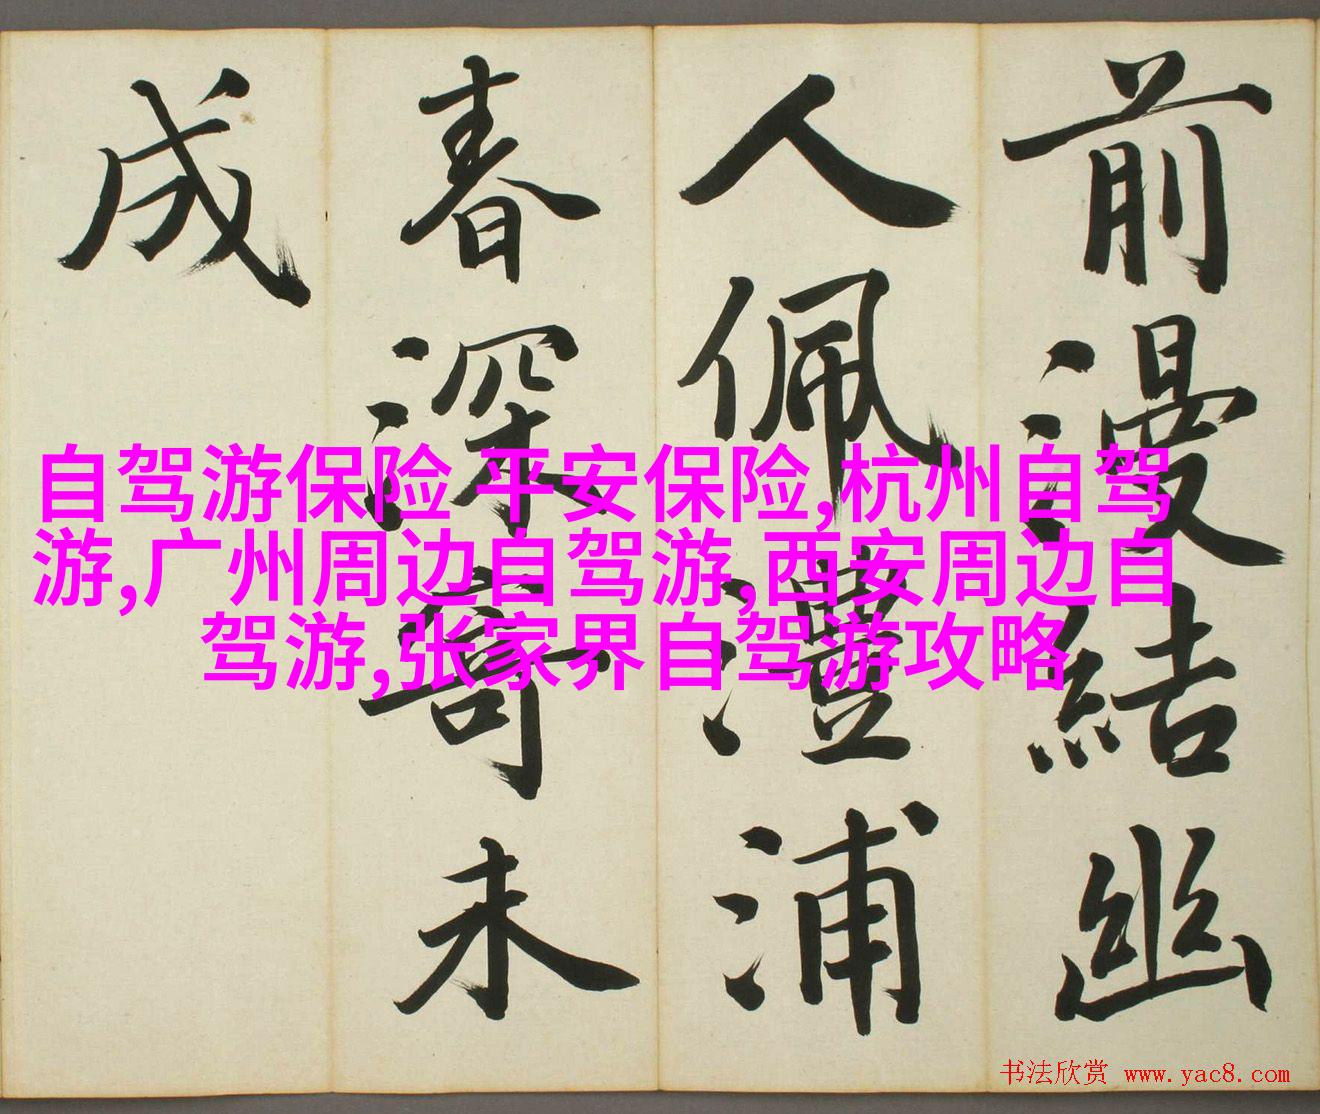 前漫結幽
人佩澧浦
春深寄未
成
自驾游保险 平安保险,杭州自驾
游,广州周边自驾游,西安周边自
驾游,张家界自驾游攻略
书法欣赏 www.yac8.com